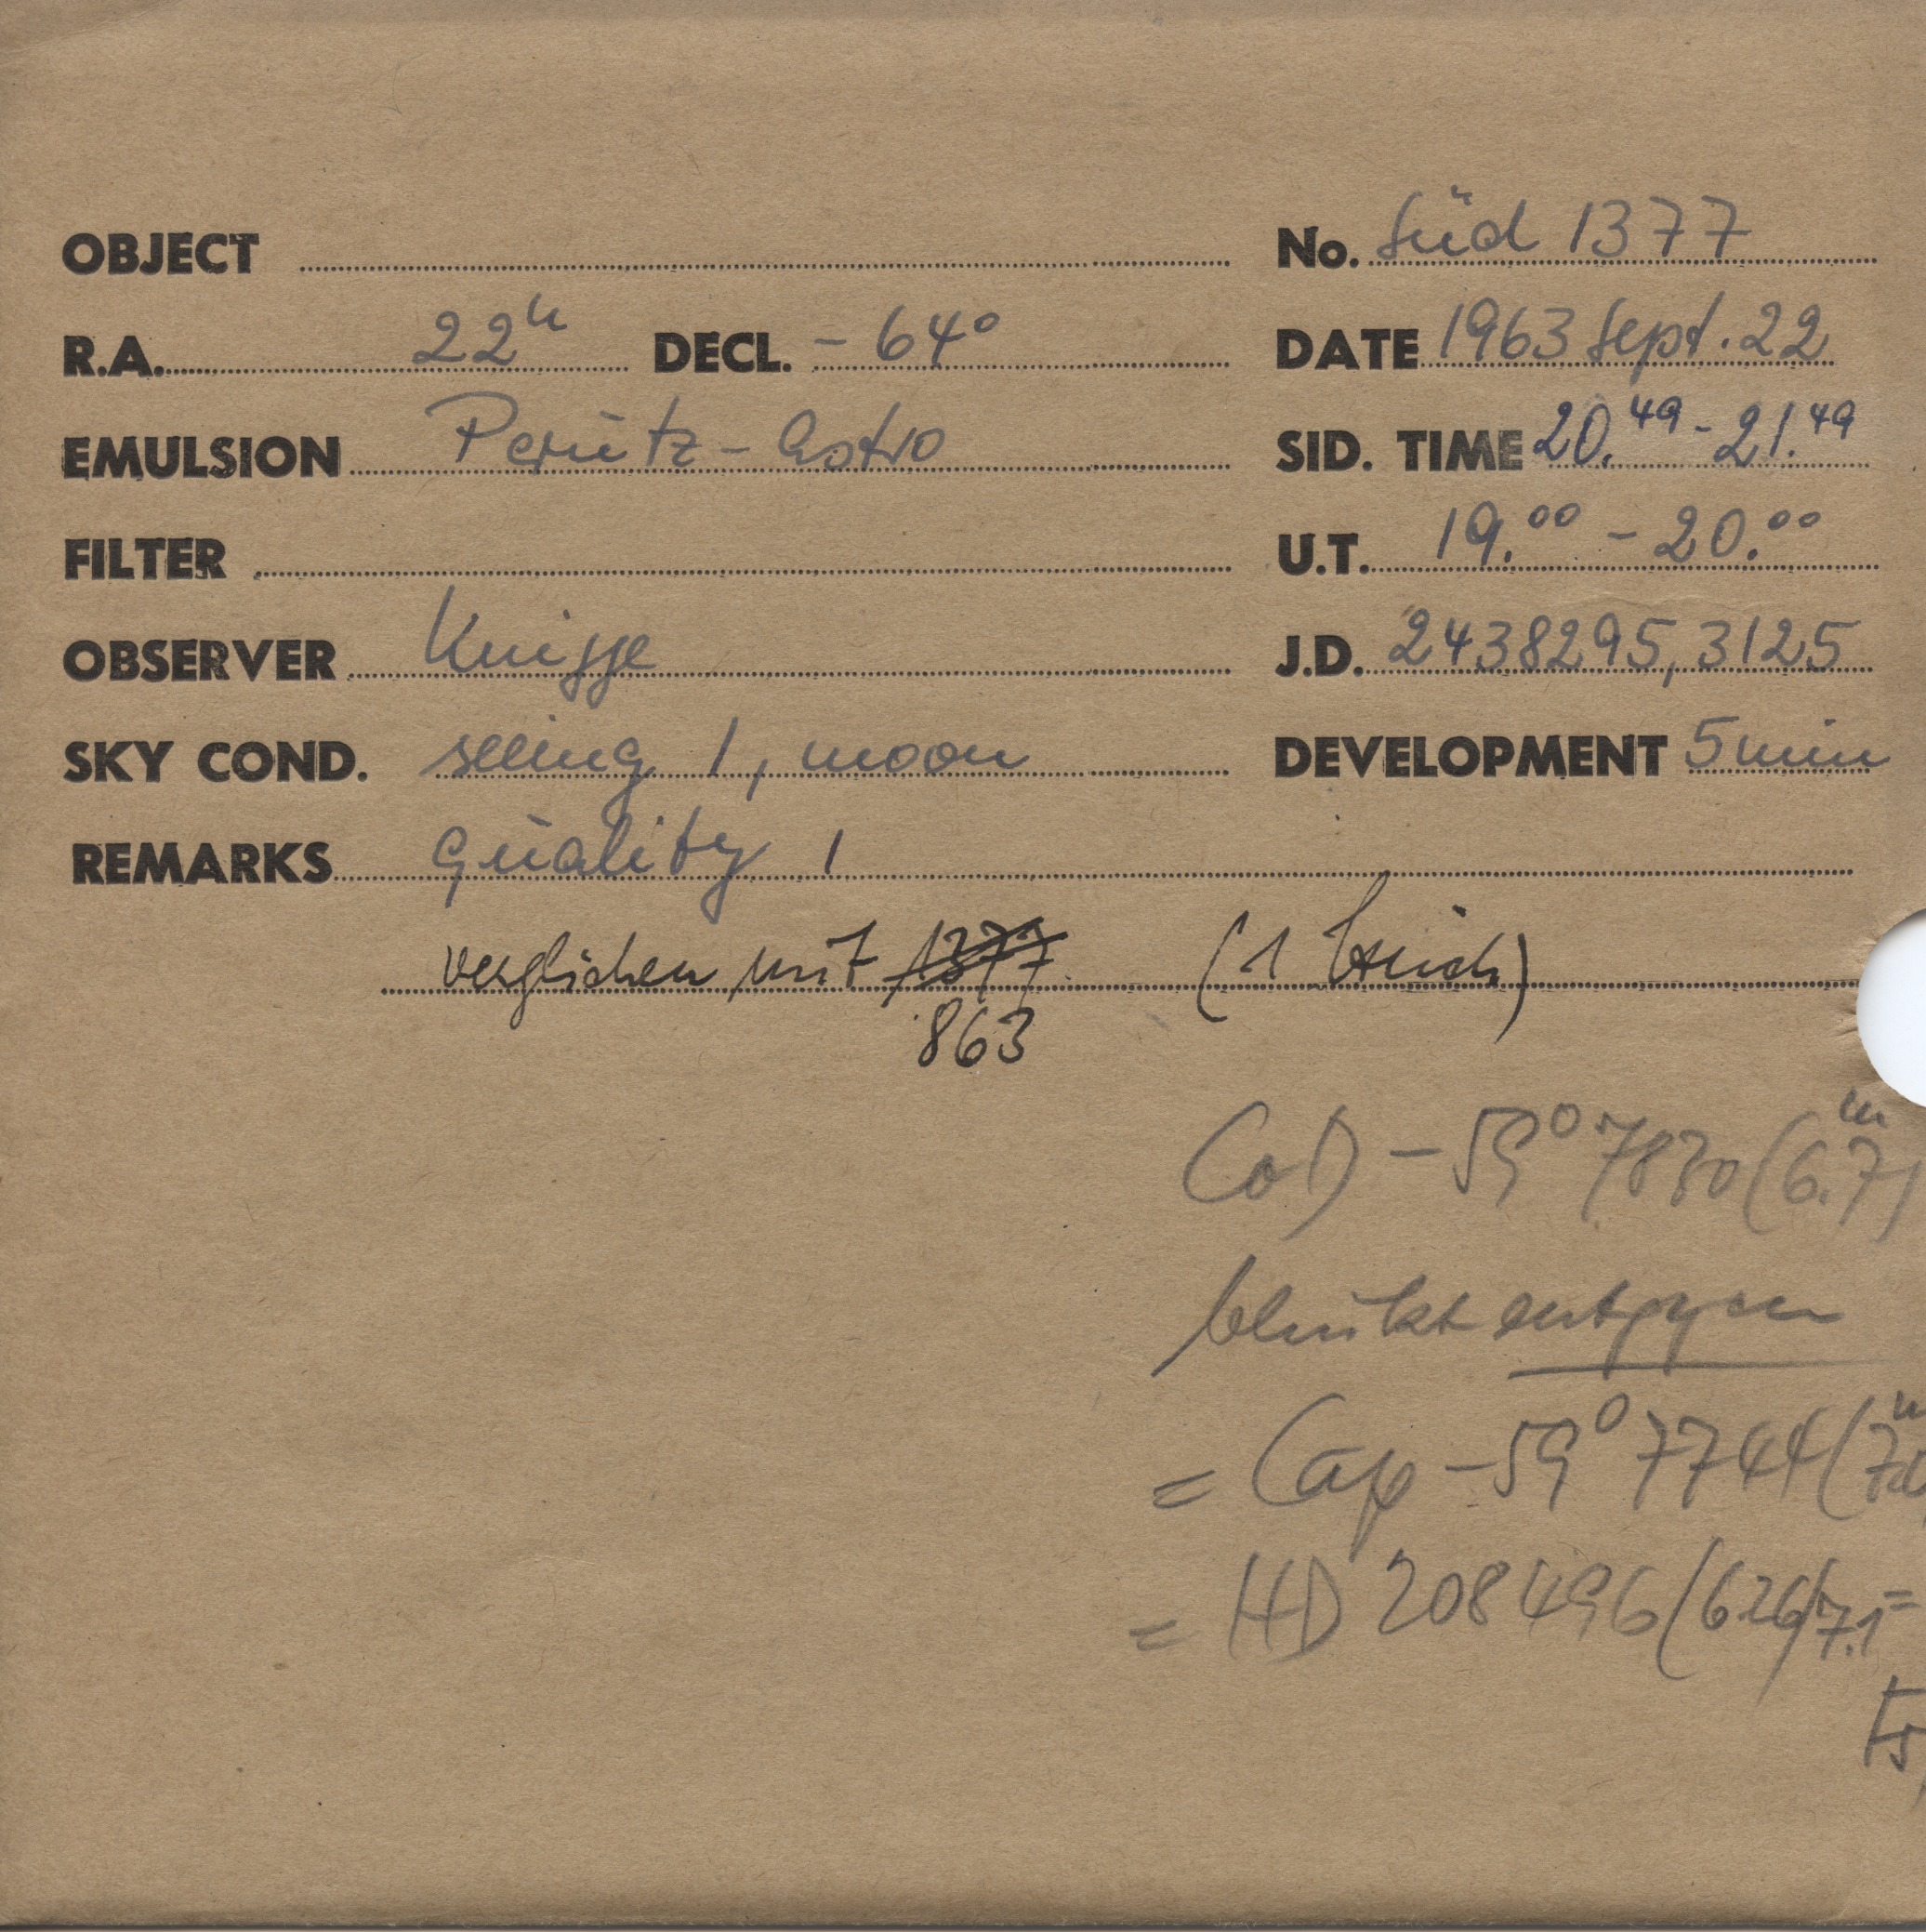 OBJECT No. Süd 1377
R.A. 22h DECL. - 64° DATE 1963 Sept. 22
EMULSION Perutz - Astro SID. TIME 20.49 - 21.49
FILTER U.T. 19.00 - 20.00
OBSERVER Knigge J.D. 2438295,3125
SKY COND. seeing 1, moon DEVELOPMENT 5 min
REMARKS quality 1
verglichen mit 1377 (1 Strich)
863
CoD - 59° 7830 (6.7m)
blinkt
= Cap - 59° 7744 (7.
= HD 208496 (6.26/7.1 =